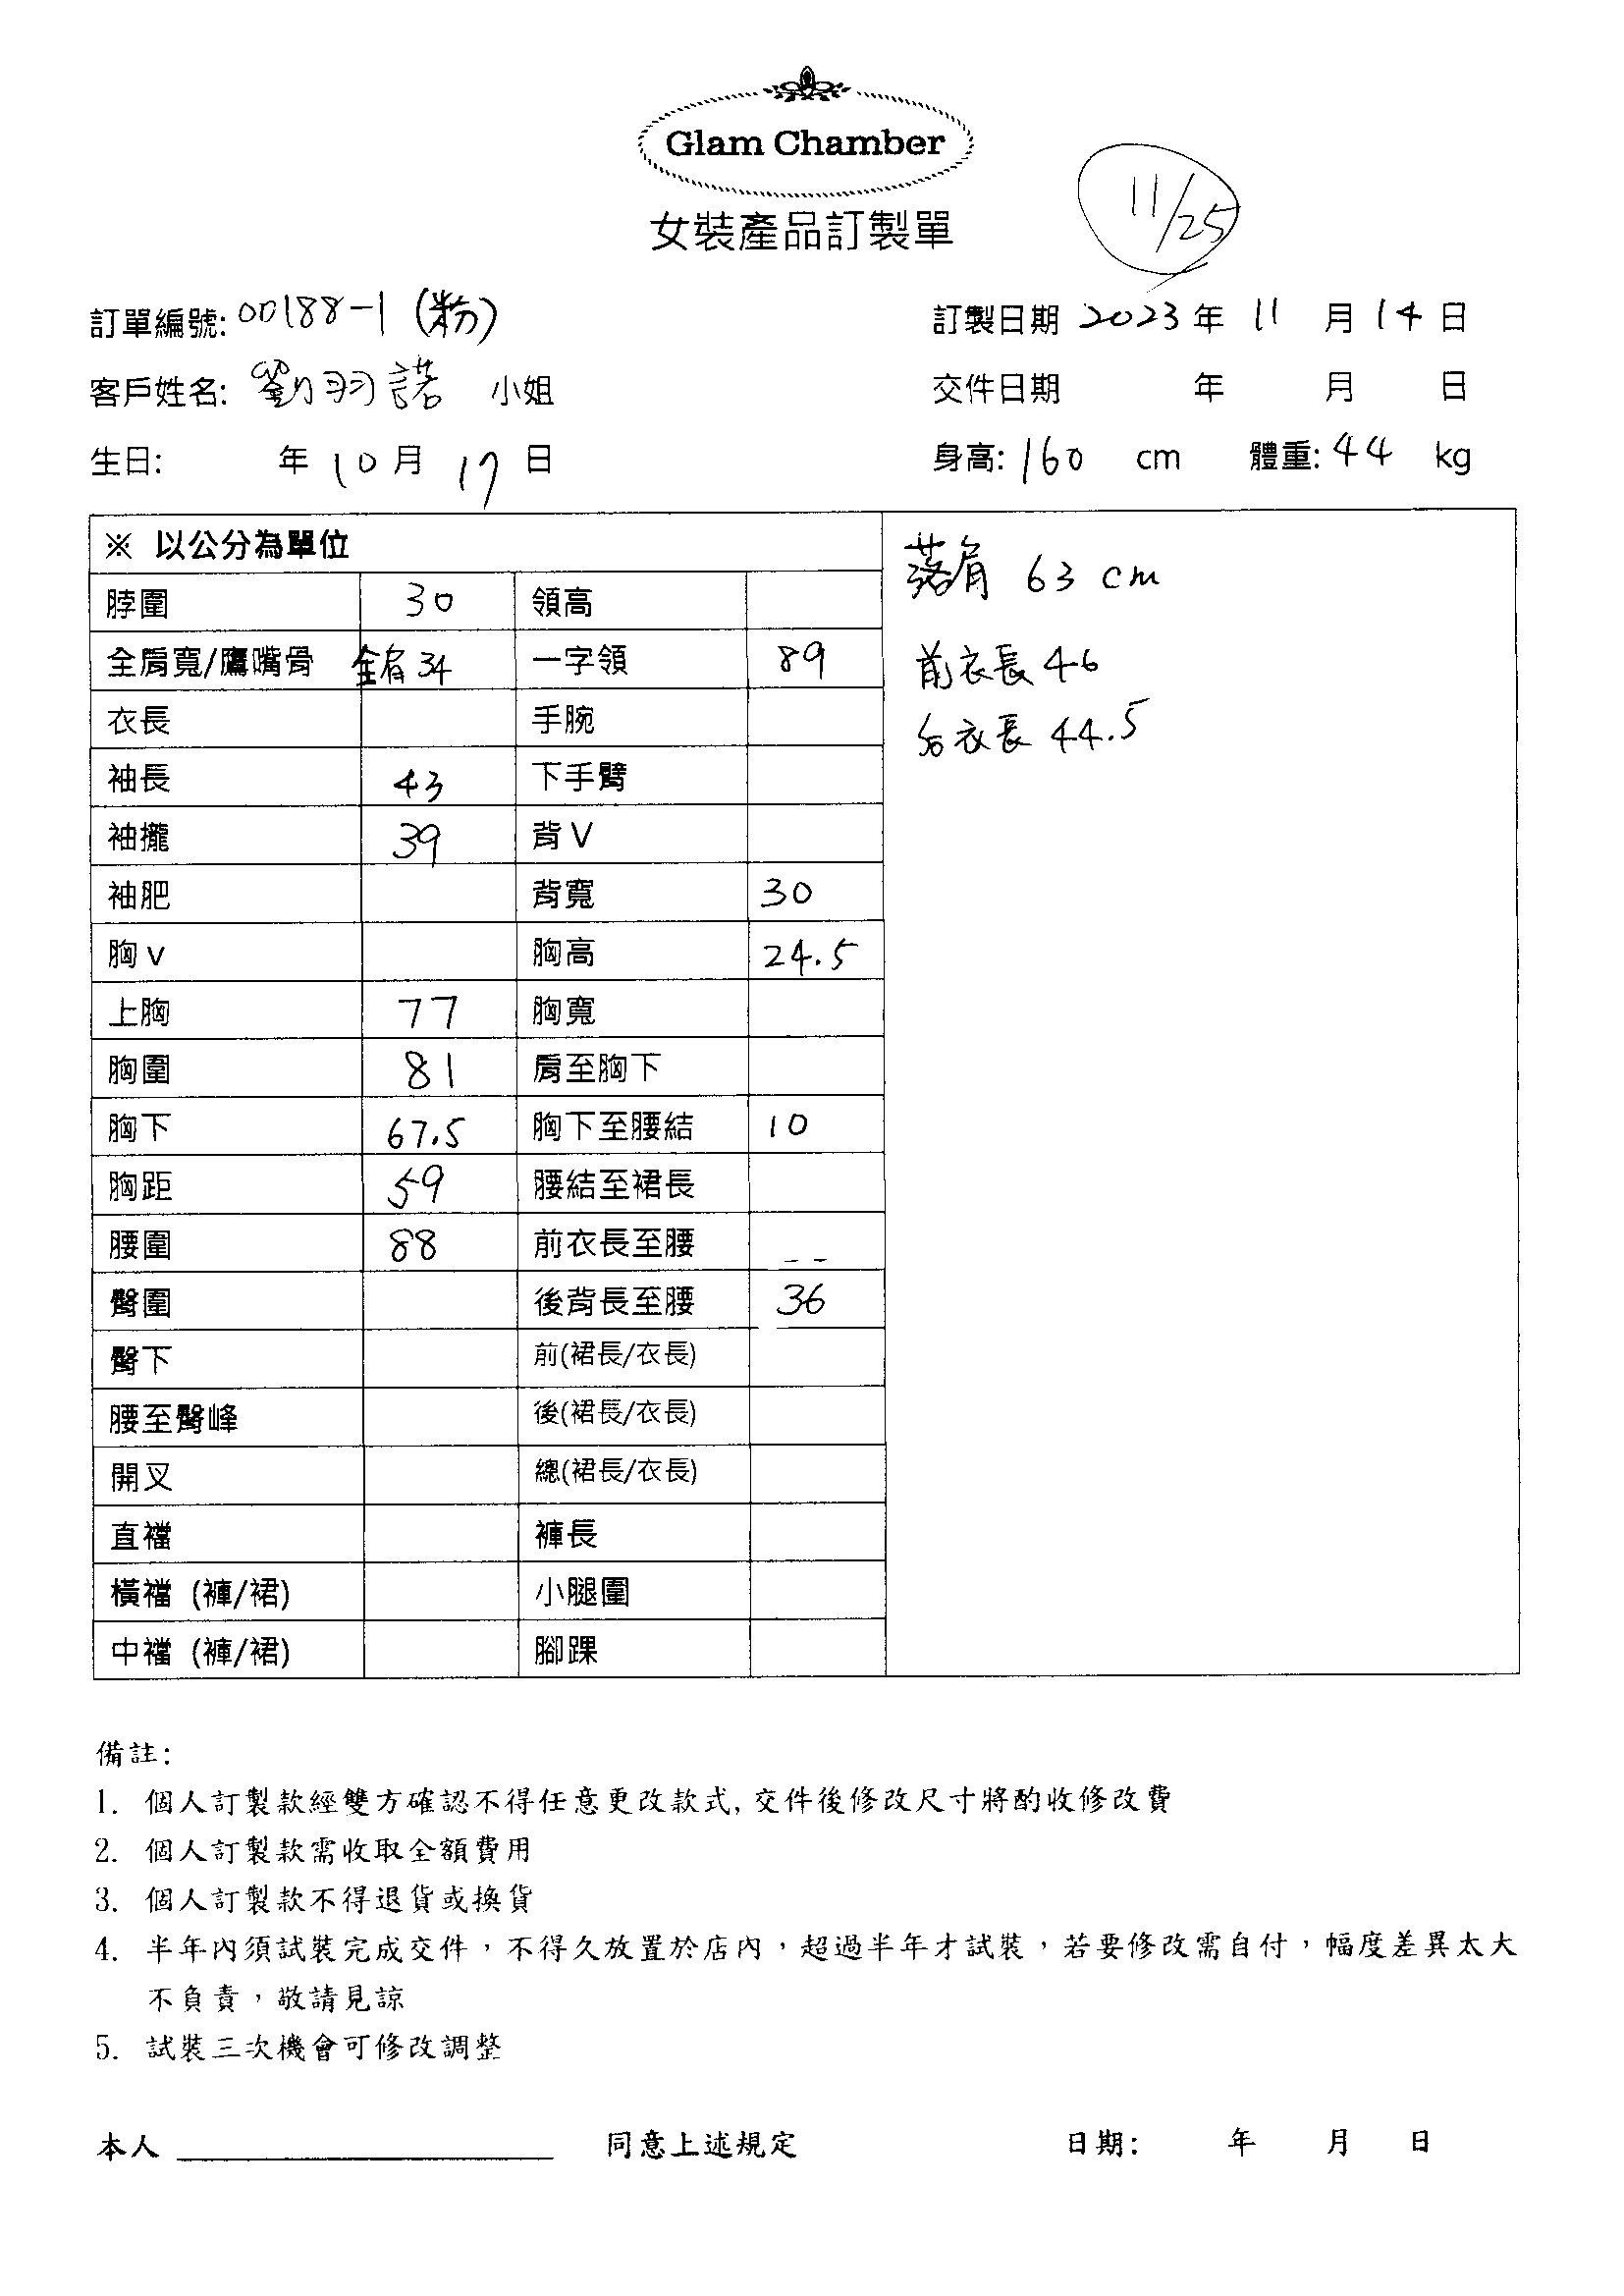 Glam Chamber
女裝產品訂製單
11/25
訂單編號: 00188-1 (粉)
訂製日期 2023 年 11 月 14 日
客戶姓名: 劉羽諾 小姐
交件日期 年 月 日
生日: 年 10 月 17 日
身高: 160 cm 體重: 44 kg
※ 以公分為單位
脖圍 30 領高
全肩寬/鷹嘴骨 全肩 34 一字領 89
衣長 手腕
袖長 43 下手臂
袖攏 39 背V
袖肥 背寬 30
胸v 胸高 24.5
上胸 77 胸寬
胸圍 81 肩至胸下
胸下 67.5 胸下至腰結 10
胸距 59 腰結至裙長
腰圍 88 前衣長至腰
臀圍 後背長至腰 36
臀下 前(裙長/衣長)
腰至臀峰 後(裙長/衣長)
開叉 總(裙長/衣長)
直襠 褲長
橫襠 (褲/裙) 小腿圍
中襠 (褲/裙) 腳踝
落肩 63 cm
前衣長 46
后衣長 44.5
備註:
1. 個人訂製款經雙方確認不得任意更改款式, 交件後修改尺寸將酌收修改費
2. 個人訂製款需收取全額費用
3. 個人訂製款不得退貨或換貨
4. 半年內須試裝完成交件，不得久放置於店內，超過半年才試裝，若要修改需自付，幅度差異太大
不負責，敬請見諒
5. 試裝三次機會可修改調整
本人 同意上述規定 日期: 年 月 日